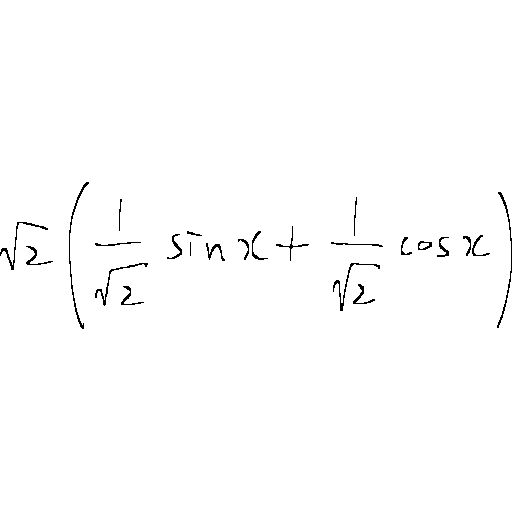 √2 ( 1/√2 sin x + 1/√2 cos x )